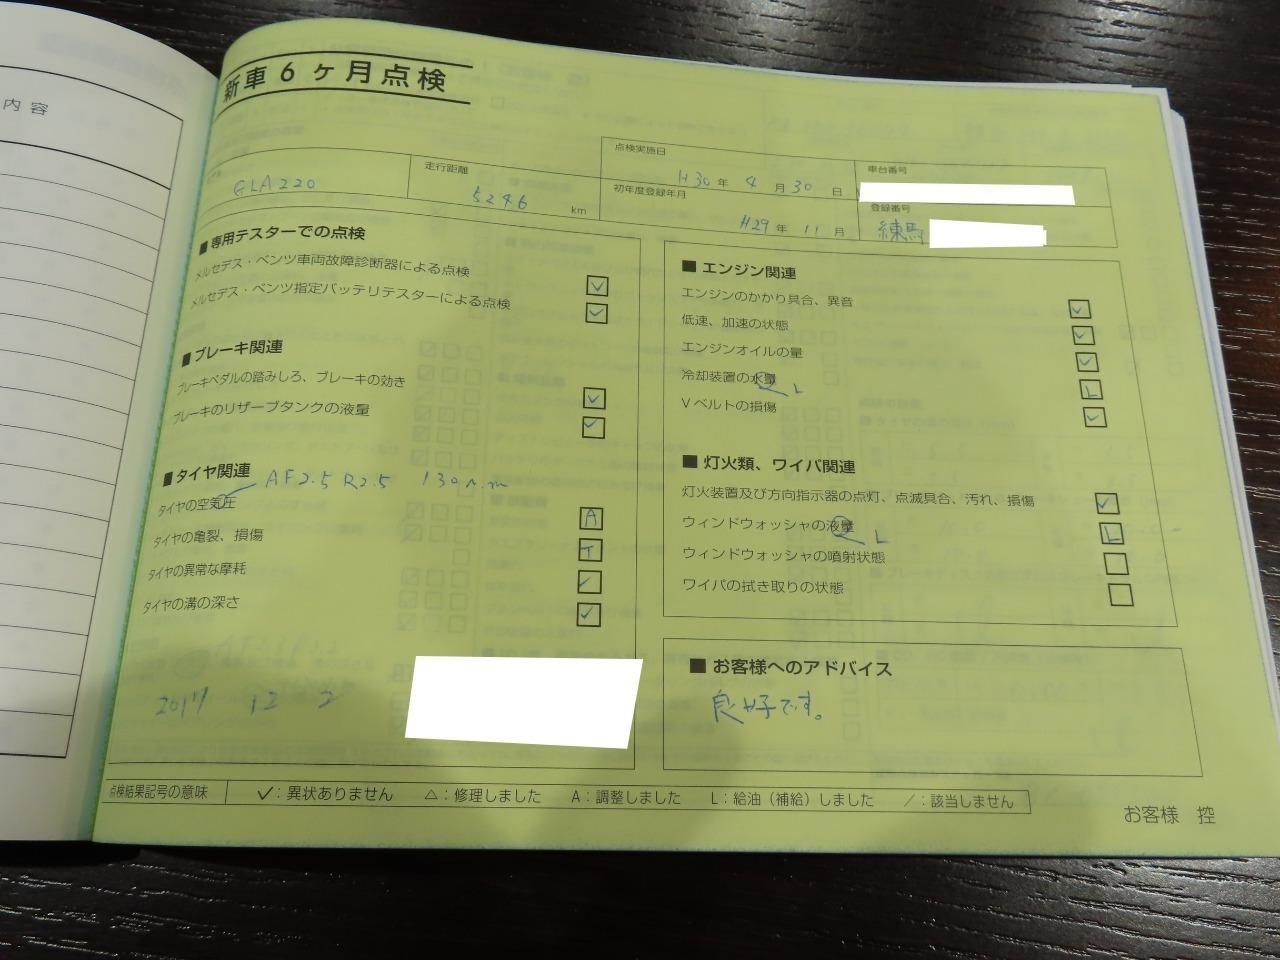 内容
新車6ヶ月点検
GLA220
走行距離
5246 km
点検実施日
H30年 4月 30日
初年度登録年月
H29年 11月
車台番号
登録番号
練馬
■専用テスターでの点検
メルセデス・ベンツ車両故障診断器による点検 ✓
メルセデス・ベンツ指定バッテリテスターによる点検 ✓
■ブレーキ関連
ブレーキペダルの踏みしろ、ブレーキの効き ✓
ブレーキのリザーブタンクの液量 ✓
■タイヤ関連
AF2.5 R2.5 130N.m
タイヤの空気圧 A
タイヤの亀裂、損傷 T
タイヤの異常な摩耗 ✓
タイヤの溝の深さ ✓
2017 12 2
■エンジン関連
エンジンのかかり具合、異音 ✓
低速、加速の状態 ✓
エンジンオイルの量 ✓
冷却装置の水量 L L
Vベルトの損傷 ✓
■灯火類、ワイパ関連
灯火装置及び方向指示器の点灯、点滅具合、汚れ、損傷 ✓
ウィンドウォッシャの液量 L L
ウィンドウォッシャの噴射状態
ワイパの拭き取りの状態
■お客様へのアドバイス
良好です。
点検結果記号の意味 ✓：異状ありません △：修理しました A：調整しました L：給油（補給）しました ／：該当しません
お客様 控